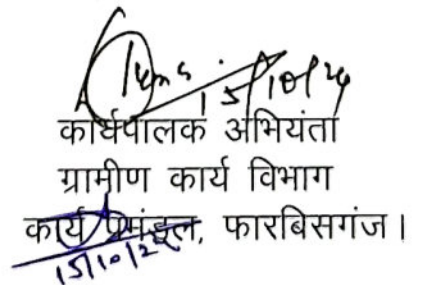 15/10/24
कार्यपालक अभियंता
ग्रामीण कार्य विभाग
कार्य प्रमंडल, फारबिसगंज।
15/10/24